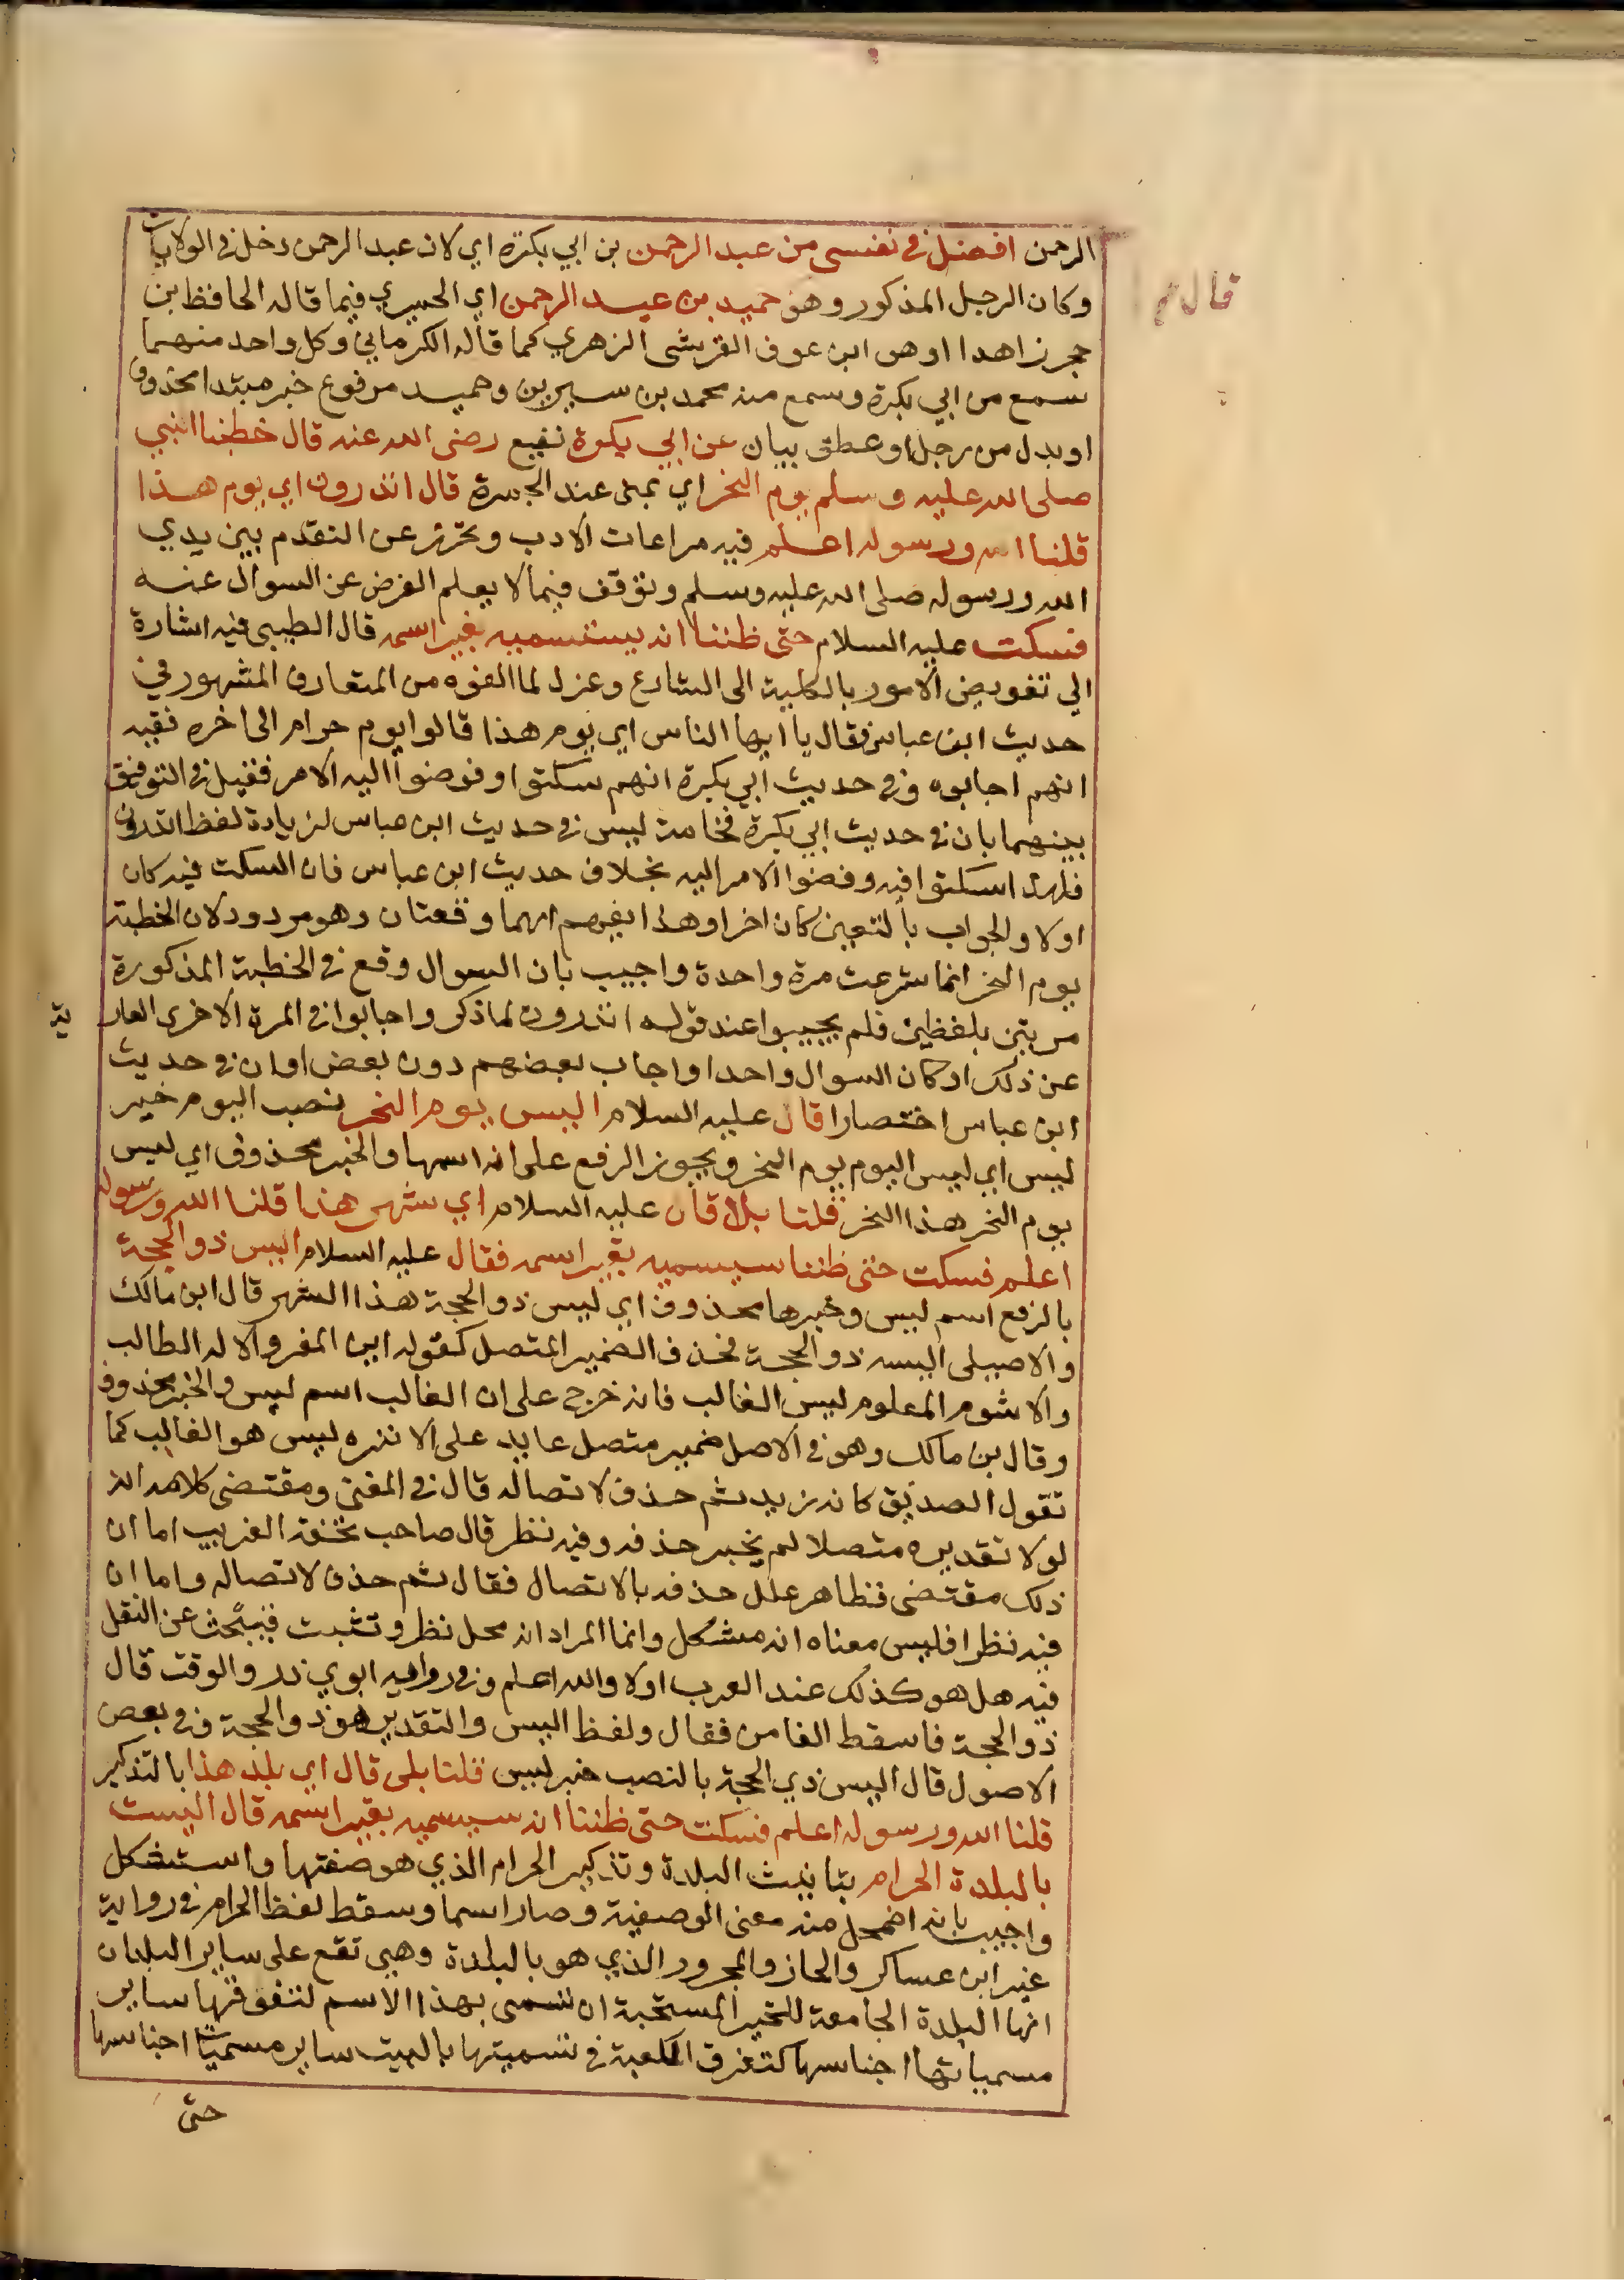 الرحمن افضل في نفسي من عبد الرحمن بن ابي بكرة اي لان عبد الرحمن دخل في الولايات
وكان الرجل المذكور وهو حميد بن عبد الرحمن اي الحميري فيما قاله الحافظ بن
حجر زاهدا او هو ابن عوف القرشي الزهري كما قاله الكرماني وكل واحد منهما
سمع من ابي بكرة وسمع منه محمد بن سيرين وحميد مرفوع خبر مبتدا محذوف
او بدل من رجل او عطف بيان عن ابي بكرة نفيع رضي الله عنه قال خطبنا النبي
صلى الله عليه وسلم يوم النحر اي بمنى عند الجمرة قال اتدرون اي يوم هذا
قلنا الله ورسوله اعلم فيه مراعات الادب وتحرز عن التقدم بين يدي
الله ورسوله صلى الله عليه وسلم وتوقف فيما لا يعلم الغرض عن السوال عنه
فسكت عليه السلام حتى ظننا انه سيسميه بغير اسمه قال الطيبي فيه اشارة
الي تفويض الامور بالكلية الى الشارع وعزل لما الفوه من المتعارف المشهور في
حديث ابن عباس فقال يا ايها الناس اي يوم هذا قالوا يوم حرام الى اخره ففيه
انهم اجابوه وفي حديث ابي بكرة انهم سكتوا وفوضوا اليه الامر فقيل في التوفيق
بينهما بان في حديث ابي بكرة فخامة ليس في حديث ابن عباس لزيادة لفظ اتدرون
فلهذا سكتوا فيه وفوضوا الامر اليه بخلاف حديث ابن عباس فان السكت فيه كان
اولا والجواب بالتعيين كان اخرا وهذا يفهم انهما وقعتان وهو مردود لان الخطبة
يوم النحر انما شرعت مرة واحدة واجيب بان السوال وقع في الخطبة المذكورة
مرتين بلفظين فلم يجيبوا عند قوله اتدرون لما ذكر واجابوا في المرة الاخرى العار
ية
عن ذلك او كان السوال واحدا واجاب بعضهم دون بعض او ان في حديث
ابن عباس اختصارا قال عليه السلام اليس يوم النحر بنصب اليوم خبر
ليس اي ليس اليوم يوم النحر ويجوز الرفع على انه اسمها والخبر محذوف اي ليس
يوم النحر هذا النحر قلنا بلا قال عليه السلام اي شهر هذا قلنا الله ورسوله
اعلم فسكت حتى ظننا سيسميه بغير اسمه فقال عليه السلام اليس ذو الحجة
بالرفع اسم ليس وخبرها محذوف اي ليس ذو الحجة هذا الشهر قال ابن مالك
والاصيلي اليسه ذو الحجة فحذف الضمير المتصل كقوله اين المفر والاله الطالب
والاشرم المعلوم ليس الغالب فانه خرج على ان الغالب اسم ليس والخبر محذوف
وقال بن مالك وهو في الاصل ضمير متصل عايد على الا نره ليس هو الغالب كما
تقول الصديق كانه زيد ثم حذف لاتصاله قال في المغني ومقتضى كلامه انه
لولا تقديره متصلا لم يخبر حذفه وفيه نظر قال صاحب تحفة الغريب اما ان
ذلك مقتضى فظاهر علل حذفه بالاتصال فقال ثم حذف لاتصاله واما ان
فيه نظرا فليس معناه انه مشكل وانما المراد انه محل نظر وتثبت فيبحث عن النقل
فيه هل هو كذلك عند العرب اولا والله اعلم وفي رواية ابوي ذر والوقت قال
ذو الحجة فاسقط الفا من فقال ولفظ اليس والتقدير هو ذو الحجة وفي بعض
الاصول قال اليس ذي الحجة بالنصب خبر ليس قلنا بلى قال اي بلد هذا بالتذكير
قلنا الله ورسوله اعلم فسكت حتى ظننا انه سيسميه بغير اسمه قال اليست
بالبلدة الحرام بتانيث البلدة وتذكير الحرام الذي هو صفتها واستشكل
واجيب بانه اضمحل منه معنى الوصفية وصار اسما وسقط لفظ الحرام في رواية
غير ابن عساكر والجار والمجرور الذي هو بالبلدة وهي تقع على ساير البلدان
انها البلدة الجامعة للخير المستحبة ان تسمى بهذا الاسم لتفوقها ساير
مسمياتها اجناسها كتفرق الكعبة في تسميتها بالبيت ساير مسميات اجناسها
حتى
قال